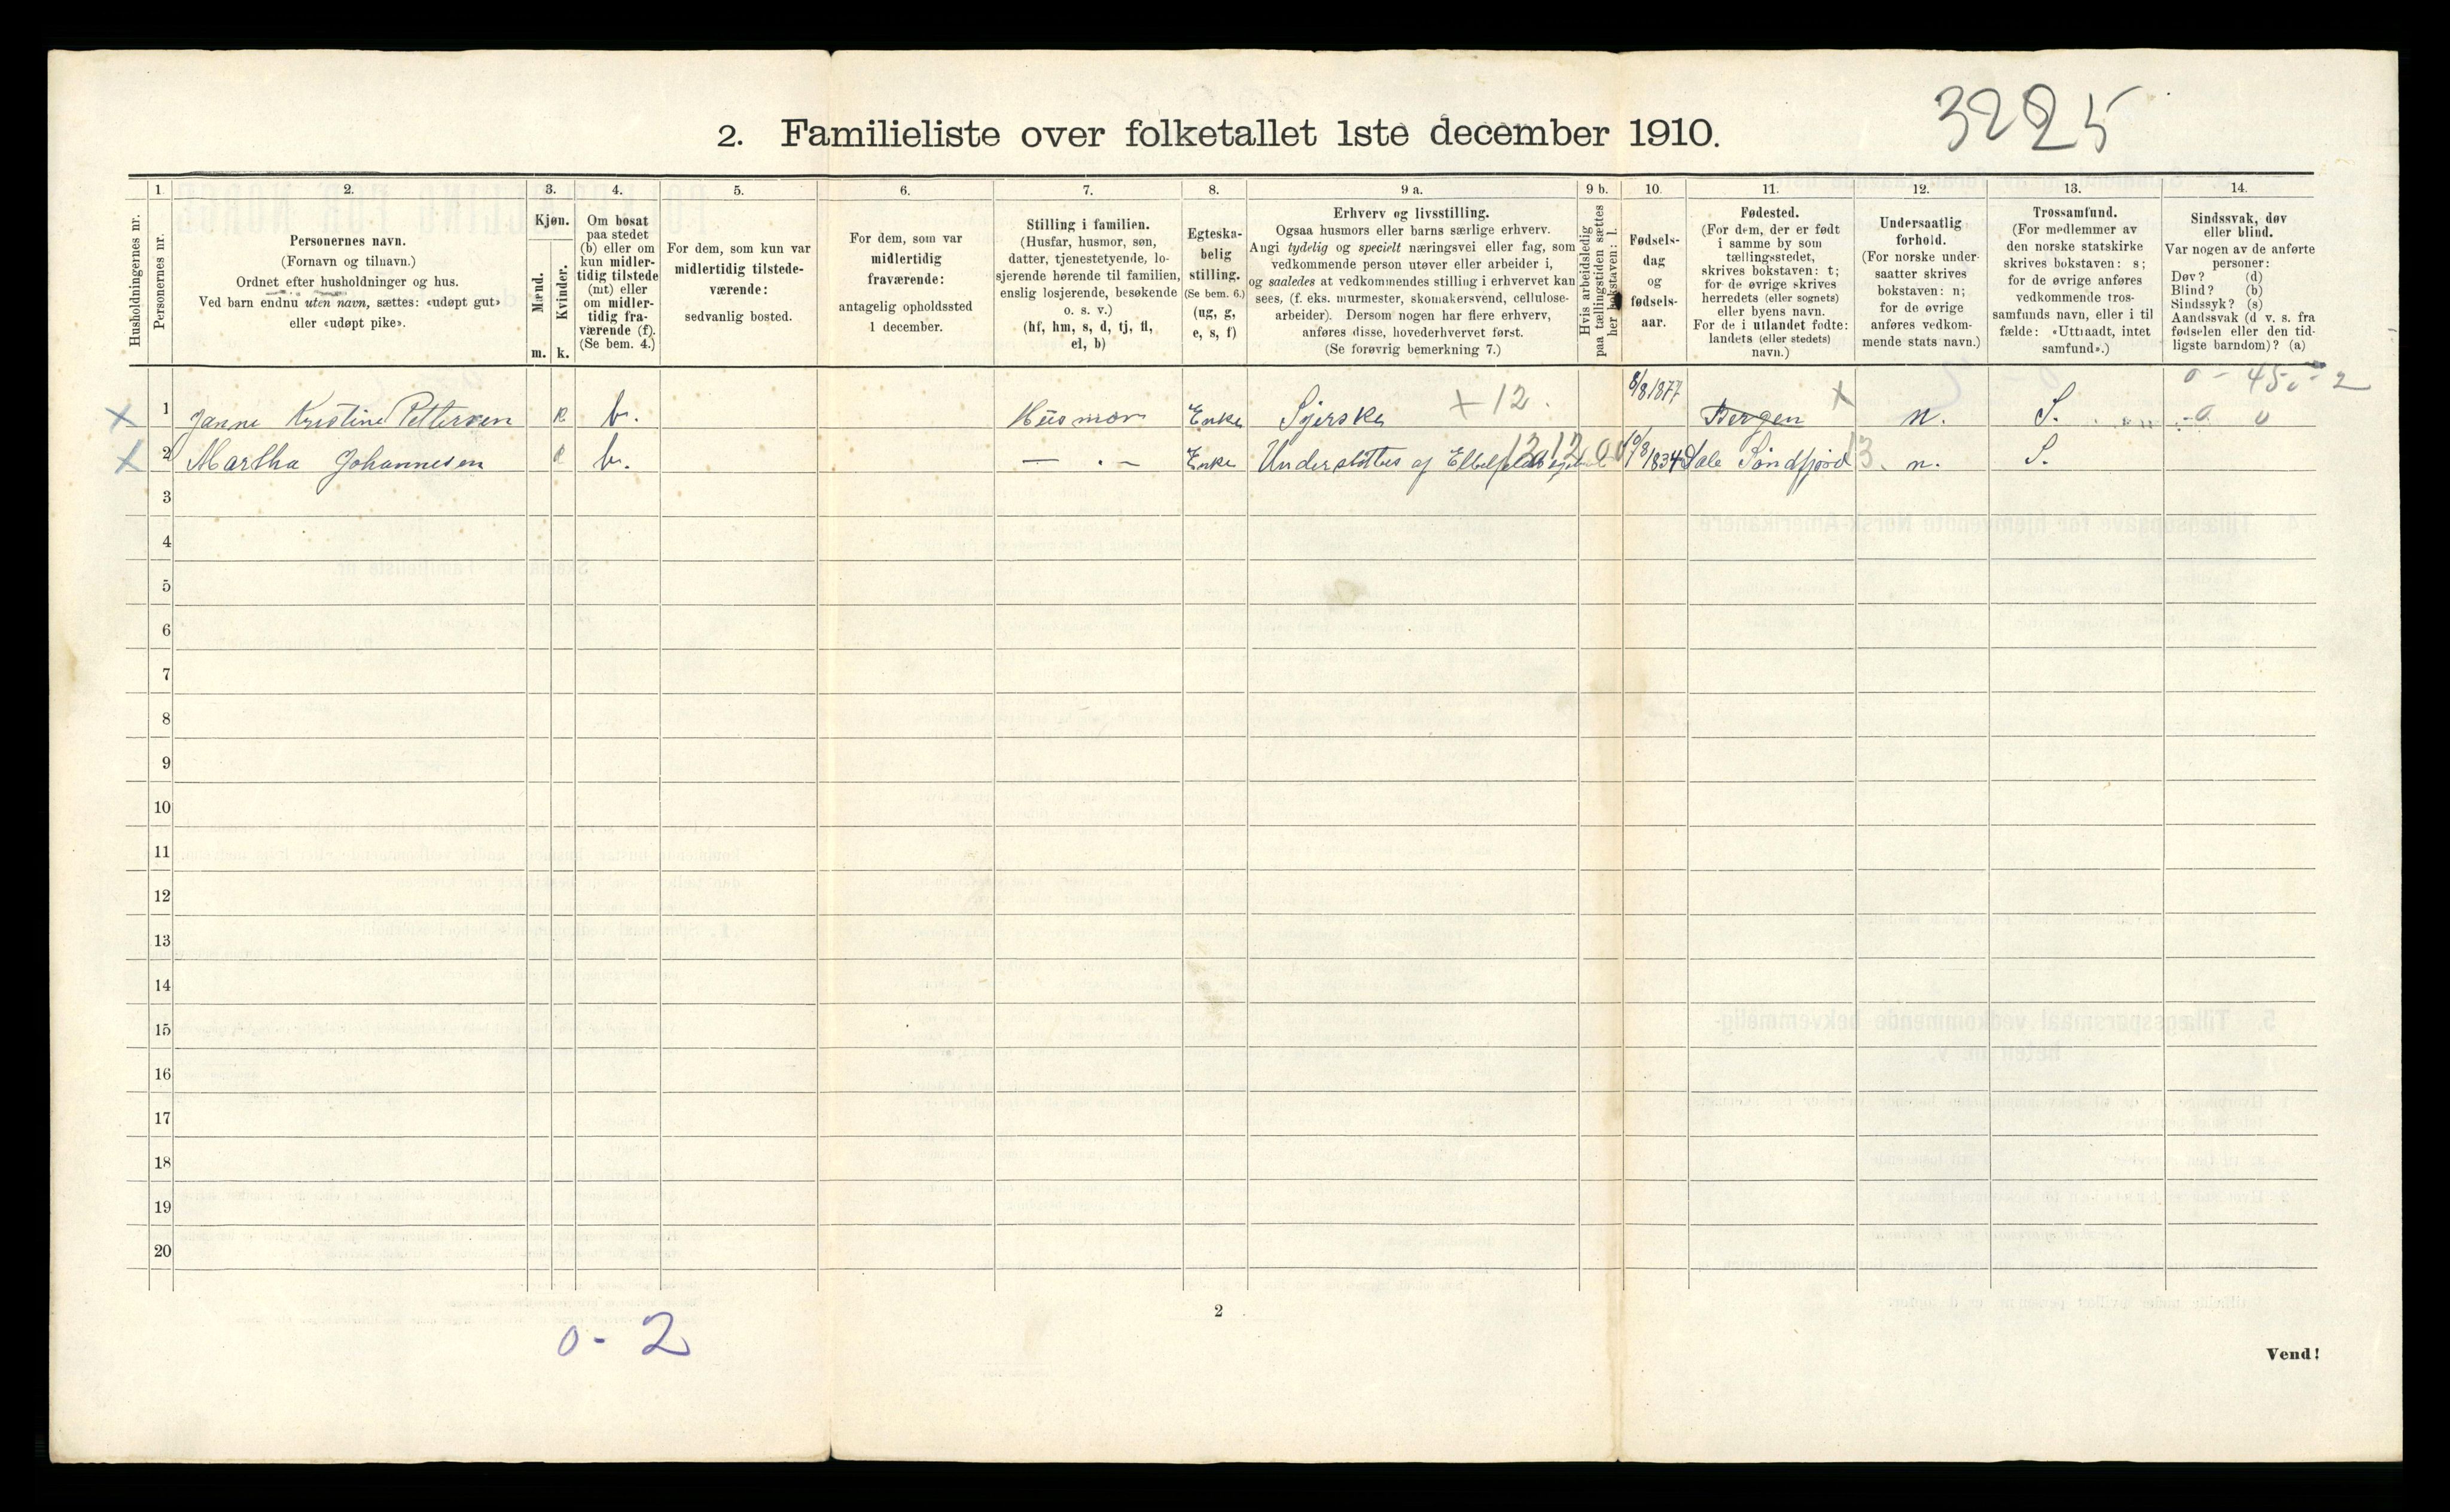 3225
2. Familieliste over folketallet 1ste december 1910.
Husholdningernes nr.
1.
Personernes nr.
2.
Personernes navn.
(Fornavn og tilnavn.)
Ordnet efter husholdninger og hus.
Ved barn endnu uten navn, sættes: «udøpt gut»
eller «udøpt pike».
3.
Kjøn.
Mænd.
Kvinder.
m. k.
4.
Om bosat
paa stedet
(b) eller om
kun midler-
tidig tilstede
(mt) eller
om midler-
tidig fra-
værende (f).
(Se bem. 4.)
5.
For dem, som kun var
midlertidig tilstede-
værende:
sedvanlig bosted.
6.
For dem, som var
midlertidig
fraværende:
antagelig opholdssted
1 december.
7.
Stilling i familien.
(Husfar, husmor, søn,
datter, tjenestetyende, lo-
sjerende hørende til familien,
enslig losjerende, besøkende
o. s. v.)
(hf, hm, s, d, tj, fl,
el, b)
8.
Egteska-
belig
stilling.
(Se bem. 6.)
(ug, g,
e, s, f)
9 a.
Erhverv og livsstilling.
Ogsaa husmors eller barns særlige erhverv.
Angi tydelig og specielt næringsvei eller fag, som
vedkommende person utøver eller arbeider i,
og saaledes at vedkommendes stilling i erhvervet kan
sees, (f. eks. murmester, skomakersvend, cellulose-
arbeider). Dersom nogen har flere erhverv,
anføres disse, hovederhvervet først.
(Se forøvrig bemerkning 7.)
9 b.
Hvis arbeidsledig
paa tællingstiden sættes
her bokstaven: l.
10.
Fødsels-
dag
og
fødsels-
aar.
11.
Fødested.
(For dem, der er født
i samme by som
tællingsstedet,
skrives bokstaven: t;
for de øvrige skrives
herredets (eller sognets)
eller byens navn.
For de i utlandet fødte:
landets (eller stedets)
navn.)
12.
Undersaatlig
forhold.
(For norske under-
saatter skrives
bokstaven: n;
for de øvrige
anføres vedkom-
mende stats navn.)
13.
Trossamfund.
(For medlemmer av
den norske statskirke
skrives bokstaven: s;
for de øvrige anføres
vedkommende tros-
samfunds navn, eller i til
fælde: «Uttraadt, intet
samfund».)
14.
Sindssvak, døv
eller blind.
Var nogen av de anførte
personer:
Døv? (d)
Blind? (b)
Sindssyk? (s)
Aandssvak (d v. s. fra
fødselen eller den tid-
ligste barndom)? (a)
x 1 Janna Kristine Pettersen k b. Husmor Enke Syerske +12. 8/8 1877 Bergen x n. S.
x 2 Martha Johannesen k b. — . — Enke Understøttes af 1834 Dale Søndfjord 13. n. S.
3
4
5
6
7
8
9
10
11
12
13
14
15
16
17
18
19
20
2
0 - 2
Vend!